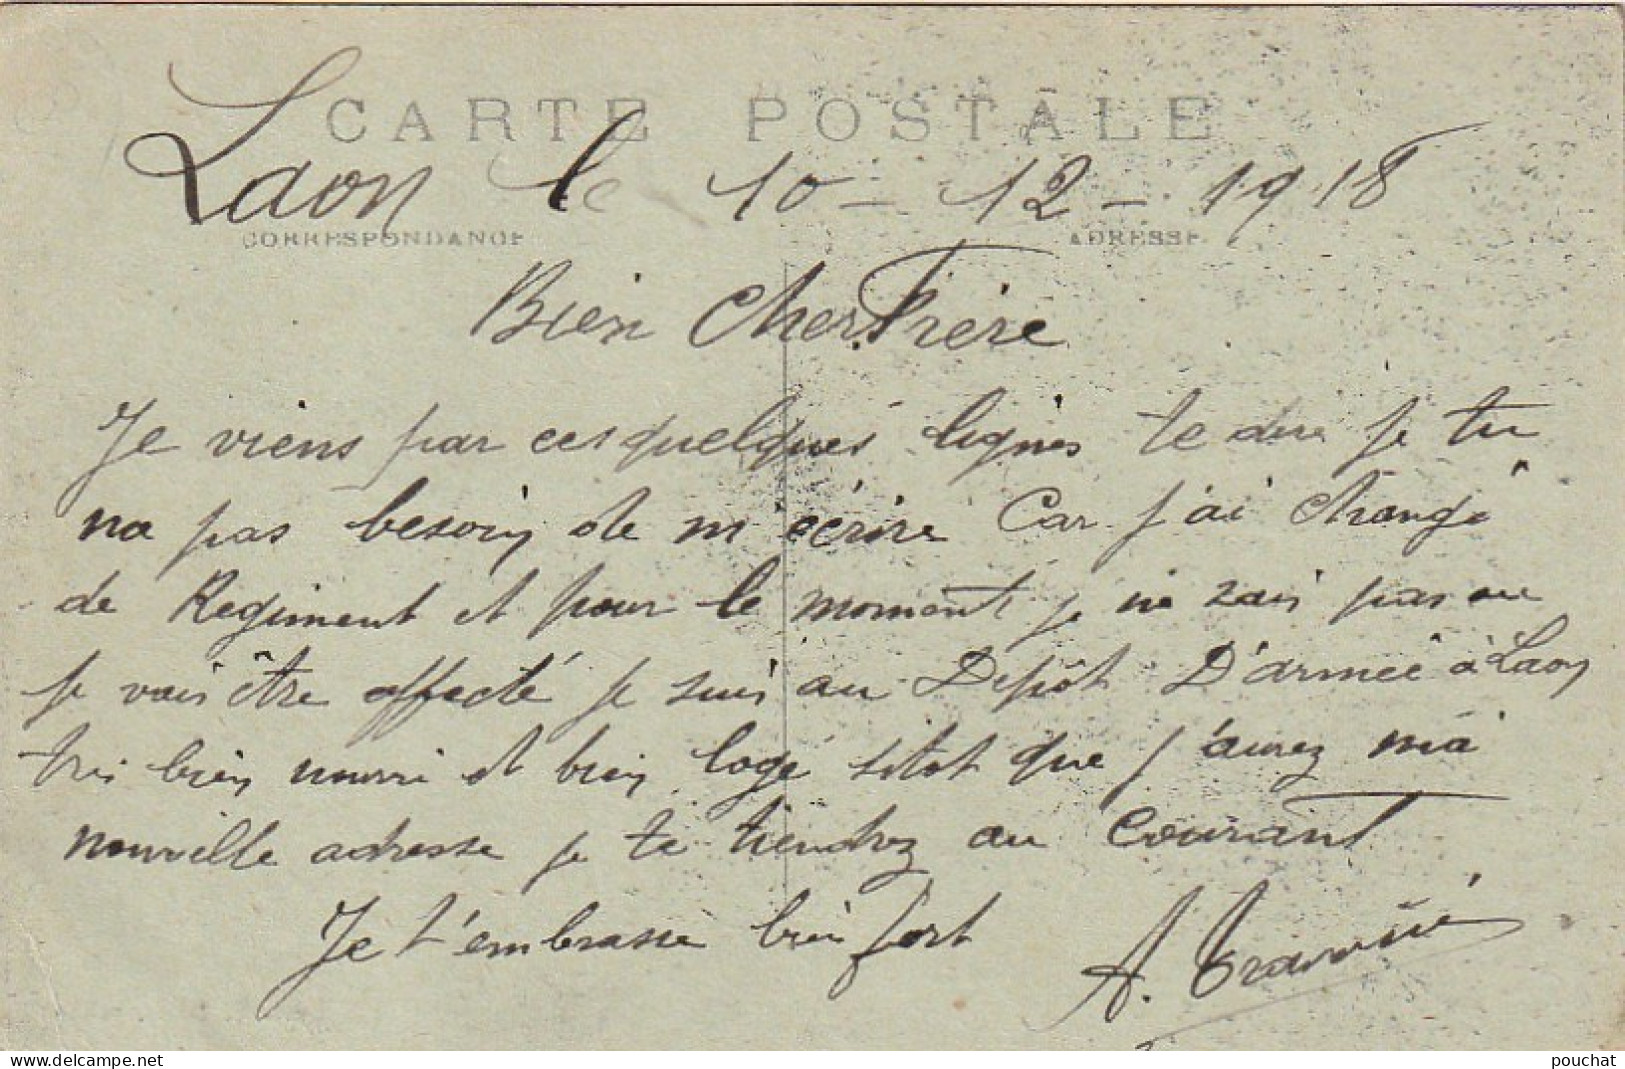 CARTE POSTALE
Laon le 10 - 12 - 1918
CORRESPONDANCE ADRESSE
Bien Cher Frère
Je viens par ces quelques lignes te dire je tu
na pas besoin de m'écrire Car j'ai Changé
de Regiment et pour le moment je ne sais pas ou
je vais être affecté je suis au Dépôt D'armée à Laon
tres bien nourri et bien logé sitot que j'aurez ma
nouvelle adresse je te tiendrez au Courant
Je t'embrasse bien fort
A.
delcampe.net
pouchat